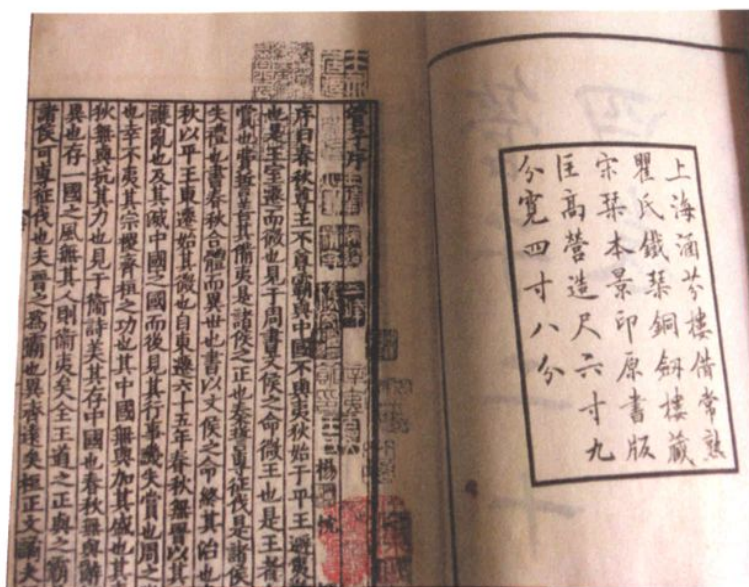 上海涵芬樓借常熟
瞿氏鐵琴銅劒樓藏
宋槧本景印原書版
匡高營造尺六寸九
分寬四寸八分
管子序
楊忱
序曰春秋尊王不尊霸與中國不與夷狄始于平王避夷
也是王室遷而微也見于周書文侯之命微王也是王者
賞也費誓善其備夷是諸侯之正也秦誓專征伐是諸侯
失禮也書春秋合體而異世也書以文侯之命終其治也
秋以平王東遷始其微也自東遷六十五年春秋無晉以其
護亂也及其滅中國之國而後見其行事譏失賞也周之
也幸不夷其宗稷齊桓之功也其中國無與加其盛也其
秋無與抗其力也見于衞詩美其存中國也春秋無與辭
異也存一國之風無其人則衞夷矣全王道之正與之霸
諸侯可專征伐也夫晉之爲霸也異齊遠矣桓正文譎夫